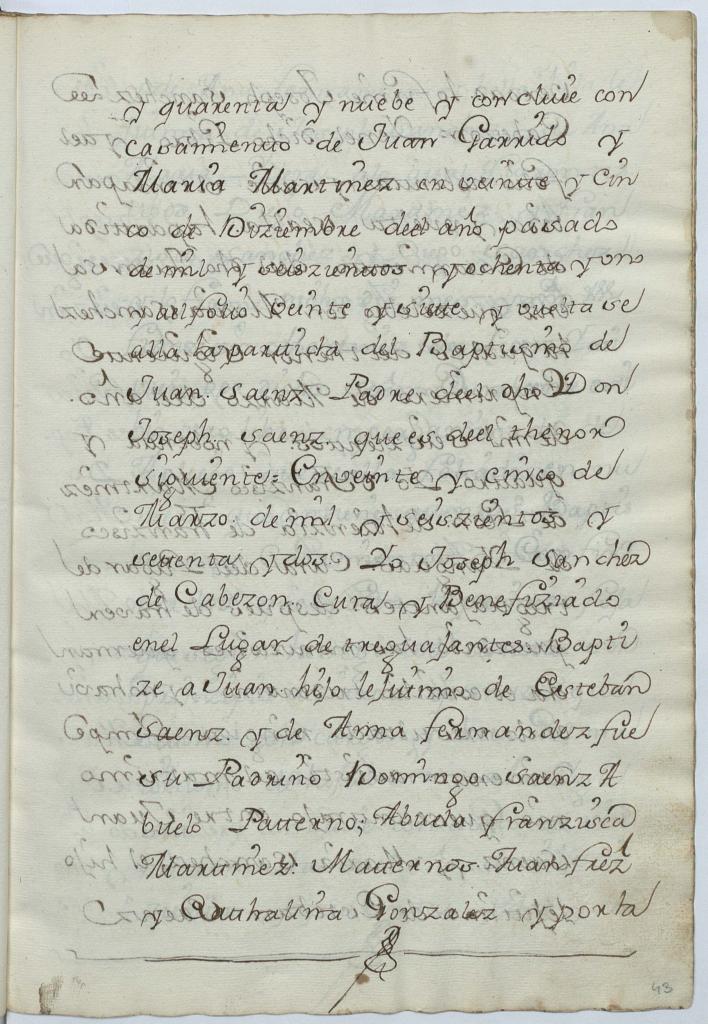 y quarenta y nuebe y concluie con
casamiento de Juan Garrido y
Maria Martinez en veinte y cin
co de Diziembre deel año pasado
de mil y seiszientos y ochenta y vno
y al folio veinte y siete y vuelta se
alla la partida del Baptismo de
Juan Saenz Padre deel dho Don
Joseph Saenz que es deel thenor
siguiente = En veinte y cinco de
Marzo de mil y seiszientos y
setenta y dos Yo Joseph Sanchez
de Cabezon Cura y Benefiziado
en el Lugar de treguajantes Bapti
ze a Juan hijo lejitimo de Esteban
Saenz y de Anna fernandez fue
su Padrino Domingo Saenz A
buelo Paterno; Abuela franzisca
Martinez: Maternos Juan frez
y Cathalina Gonzalez y por la
43